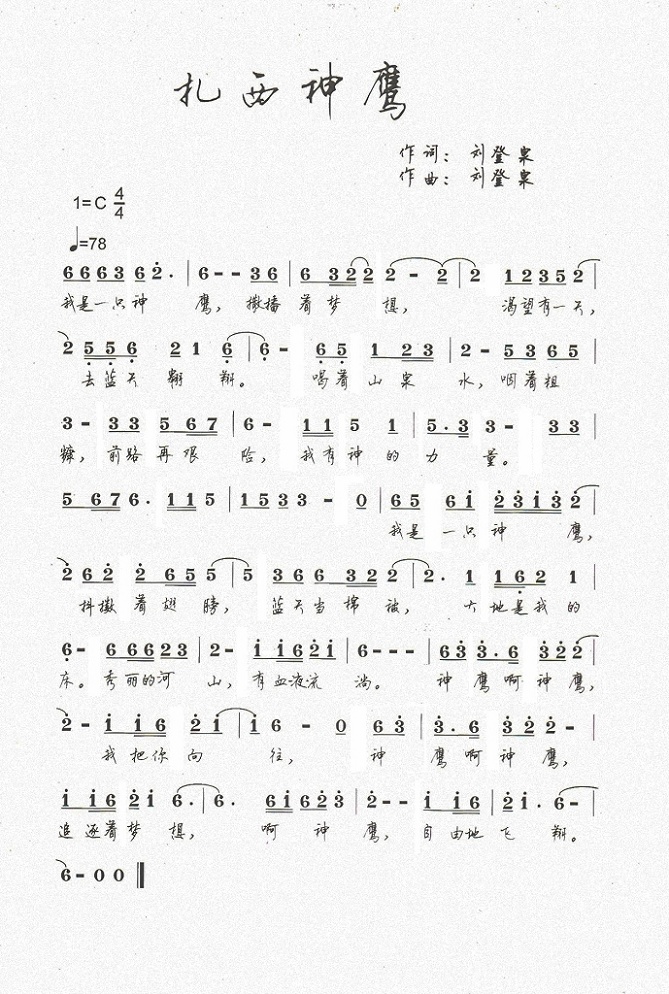 扎西神鹰
作词：刘登泉
作曲：刘登泉
1=C 4/4
♩=78
6 6 6 3 6 2 . | 6 - - 3 6 | 6 3 2 2 2 - 2 | 2 1 2 3 5 2 |
我是一只神鹰，撒播着梦想，渴望有一天，
2 5 5 6 2 1 6 | 6 - 6 5 1 2 3 | 2 - 5 3 6 5 |
去蓝天翱翔。喝着山泉水，咽着粗
3 - 3 3 5 6 7 | 6 - 1 1 5 1 | 5 . 3 3 - 3 3
糠，前路再艰险，我有神的力量。
5 6 7 6 . 1 1 5 | 1 5 3 3 - 0 | 6 5 6 i 2 3 i 3 2 |
我是一只神鹰，
2 6 2 2 6 5 5 | 5 3 6 6 6 3 2 2 | 2 . 1 1 6 2 1 |
抖擞着翅膀，蓝天当棉被，大地是我的
6 - 6 6 6 2 3 | 2 - i i 6 2 i | 6 - - - 6 3 | 3 . 6 3 2 2 |
床。秀丽的河山，有血液流淌。神鹰啊神鹰，
2 - i i 6 2 i | i 6 - 0 6 3 | 3 . 6 3 2 2 - |
我把你向往，神鹰啊神鹰，
i i 6 2 i 6 . | 6 . 6 i 6 2 3 | 2 - - i i 6 | 2 i . 6 - |
追逐着梦想，啊神鹰，自由地飞翔。
6 - 0 0